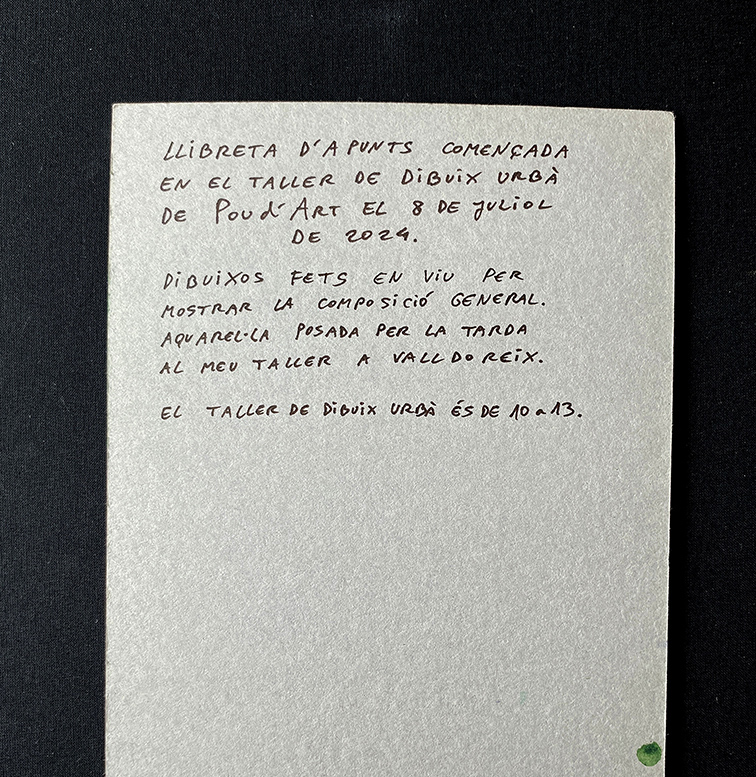 LLIBRETA D'APUNTS COMENÇADA
EN EL TALLER DE DIBUIX URBÀ
DE Pou d'ART EL 8 DE JULIOL
DE 2024.
DIBUIXOS FETS EN VIU PER
MOSTRAR LA COMPOSICIÓ GENERAL.
AQUAREL·LA POSADA PER LA TARDA
AL MEU TALLER A VALLDOREIX.
EL TALLER DE DIBUIX URBÀ ÉS DE 10 a 13.